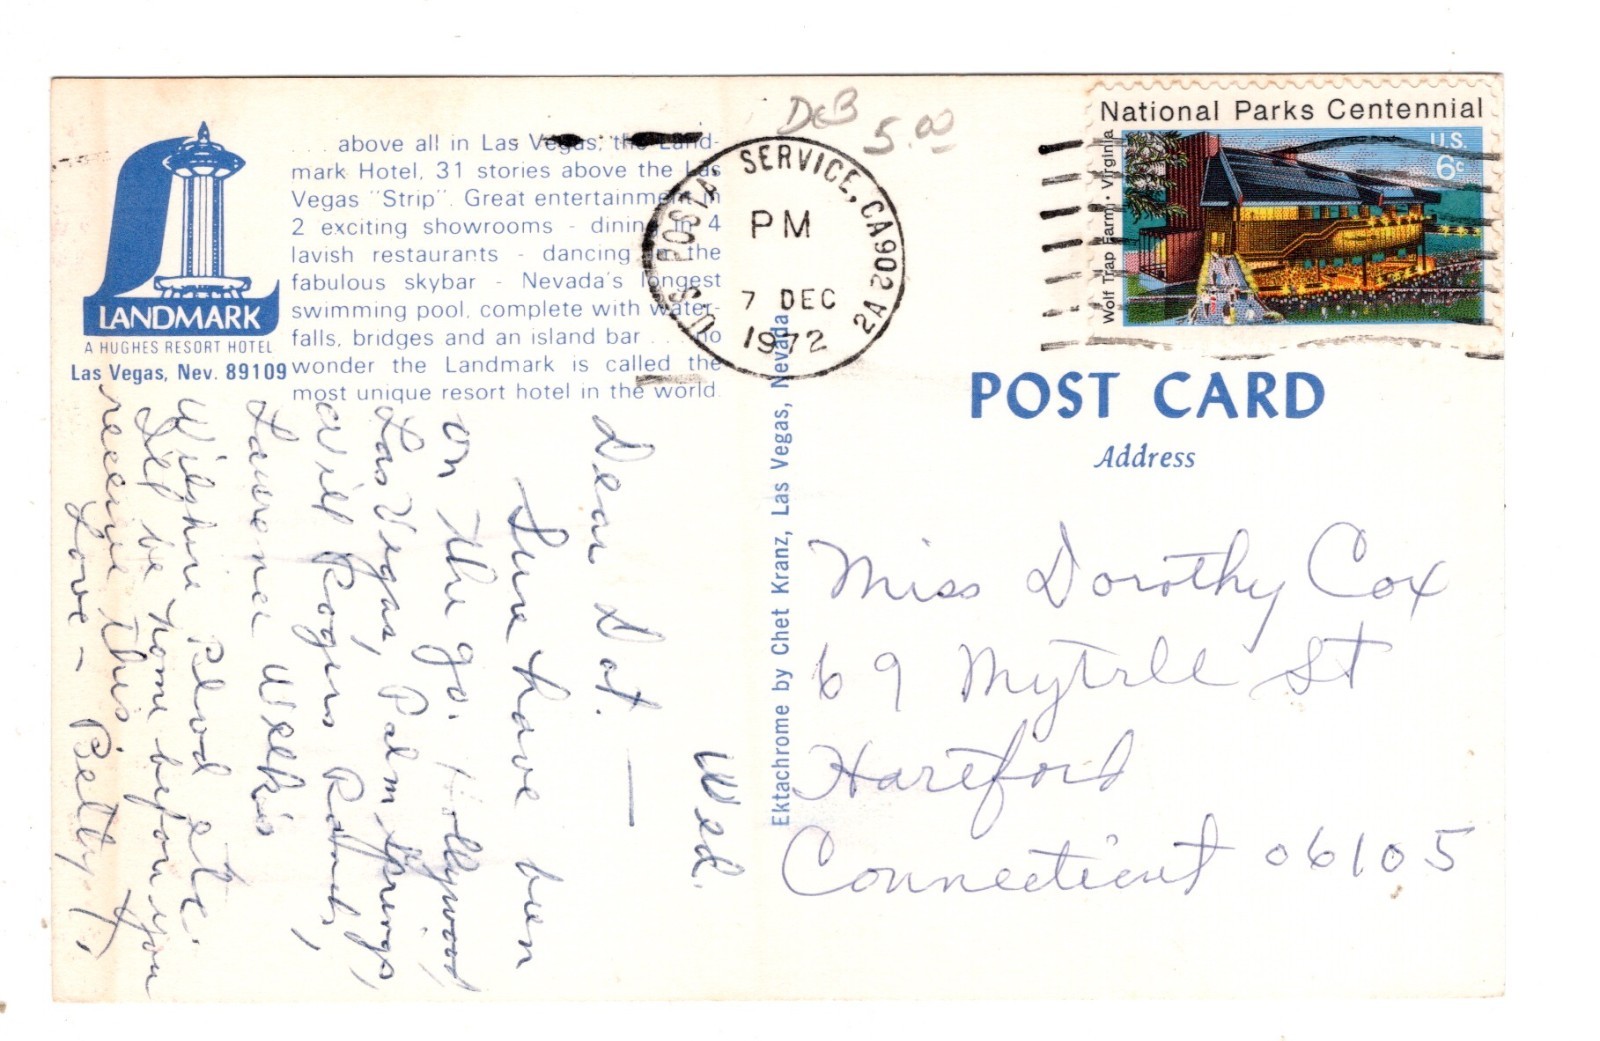 . . . above all in Las Vegas, the Land-
mark Hotel, 31 stories above the Las
Vegas "Strip". Great entertainment in
2 exciting showrooms - dining in 4
lavish restaurants - dancing in the
fabulous skybar - Nevada's longest
swimming pool, complete with water-
falls, bridges and an island bar . . . no
wonder the Landmark is called the
most unique resort hotel in the world.
LANDMARK
A HUGHES RESORT HOTEL
Las Vegas, Nev. 89109
Wed.
Dear Dot. —
Sure have been
on the go. Hollywood,
Las Vegas, Palm Springs,
Will Rogers Ranch,
Laurence Welk's
Wilshire Blvd etc.
I'll be home before you
receive this
Love - Betty
Ektachrome by Chet Kranz, Las Vegas, Nevada
DcB
5.00
U.S. POSTAL SERVICE, CA 902 2A
PM
7 DEC
1972
National Parks Centennial
U.S.
6c
Wolf Trap Farm · Virginia
POST CARD
Address
Miss Dorothy Cox
69 Myrtle St
Hartford
Connecticut 06105